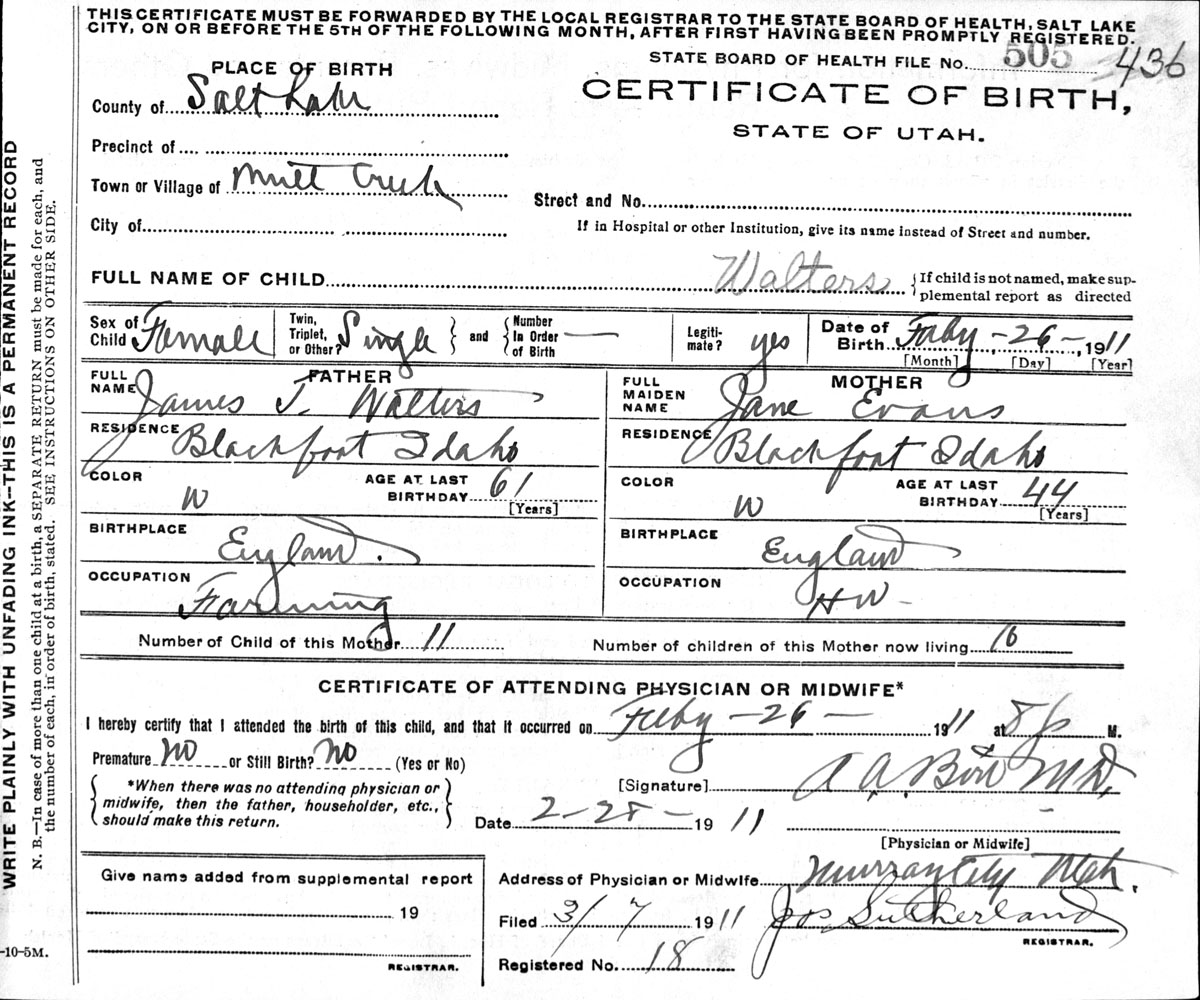 THIS CERTIFICATE MUST BE FORWARDED BY THE LOCAL REGISTRAR TO THE STATE BOARD OF HEALTH, SALT LAKE
CITY, ON OR BEFORE THE 5TH OF THE FOLLOWING MONTH, AFTER FIRST HAVING BEEN PROMPTLY REGISTERED.
STATE BOARD OF HEALTH FILE No. 505 436
PLACE OF BIRTH
CERTIFICATE OF BIRTH,
County of Salt Lake
STATE OF UTAH.
Precinct of
Town or Village of Mill Creek
Street and No.
City of
If in Hospital or other Institution, give its name instead of Street and number.
FULL NAME OF CHILD Walters { If child is not named, make sup-
plemental report as directed
Sex of Child Female Twin, Triplet, or Other? Single } and { Number In Order of Birth — Legiti- mate? yes Date of Birth Feby - 26 -, 1911
[Month] [Day] [Year]
FATHER
FULL NAME James T. Walters
RESIDENCE Blackfoot Idaho
COLOR W AGE AT LAST BIRTHDAY 61
[Years]
BIRTHPLACE England.
OCCUPATION Farming
MOTHER
FULL MAIDEN NAME Jane Evans
RESIDENCE Blackfoot Idaho
COLOR W AGE AT LAST BIRTHDAY 44
[Years]
BIRTHPLACE England
OCCUPATION HW -
Number of Child of this Mother 11 Number of children of this Mother now living 10
CERTIFICATE OF ATTENDING PHYSICIAN OR MIDWIFE*
I hereby certify that I attended the birth of this child, and that it occurred on Feby - 26 - 1911 at 8 p M.
Premature No or Still Birth? No (Yes or No)
{ *When there was no attending physician or
midwife, then the father, householder, etc.,
should make this return. }
[Signature] A. A. MD.
Date 2-28- 1911
[Physician or Midwife]
Address of Physician or Midwife Murray City Utah.
Filed 3/7 1911 Jos Sutherland
REGISTRAR.
Registered No. 18
Give name added from supplemental report
19
REGISTRAR.
WRITE PLAINLY WITH UNFADING INK--THIS IS A PERMANENT RECORD
N. B.—In case of more than one child at a birth, a SEPARATE RETURN must be made for each, and
the number of each, in order of birth, stated. SEE INSTRUCTIONS ON OTHER SIDE.
-10-5M.